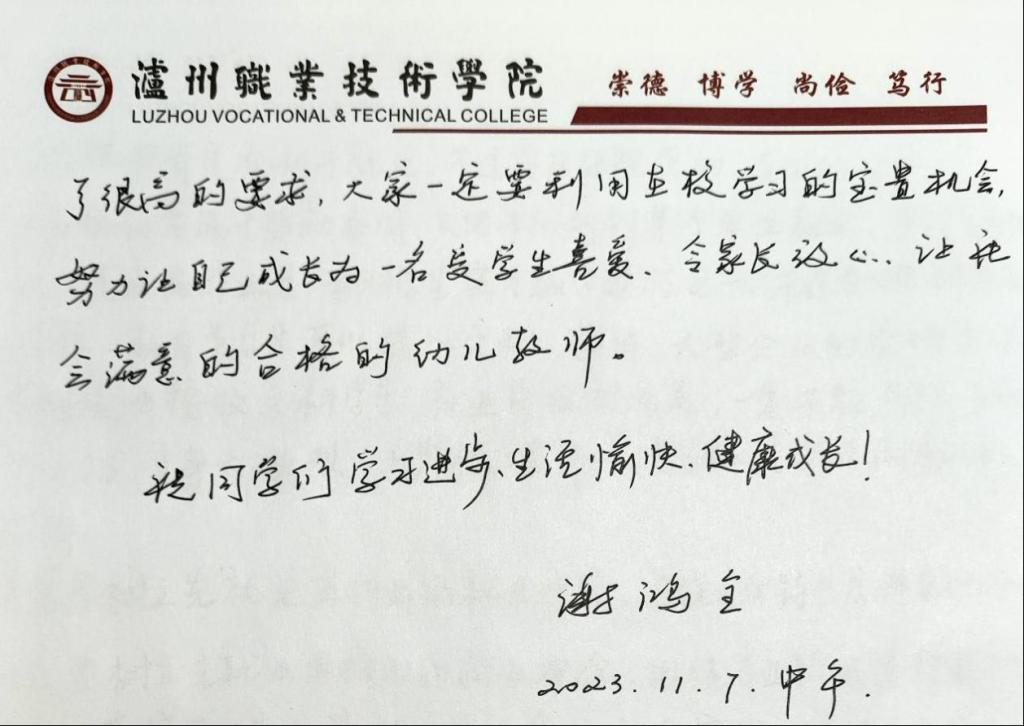 瀘州職業技術學院
LUZHOU VOCATIONAL & TECHNICAL COLLEGE
崇德 博学 尚俭 笃行
了很高的要求，大家一定要利用在校学习的宝贵机会，
努力让自己成长为一名受学生喜爱、令家长放心、让社
会满意的合格的幼儿教师。
祝同学们学习进步、生活愉快、健康成长！
谢鸿全
2023.11.7.中午.